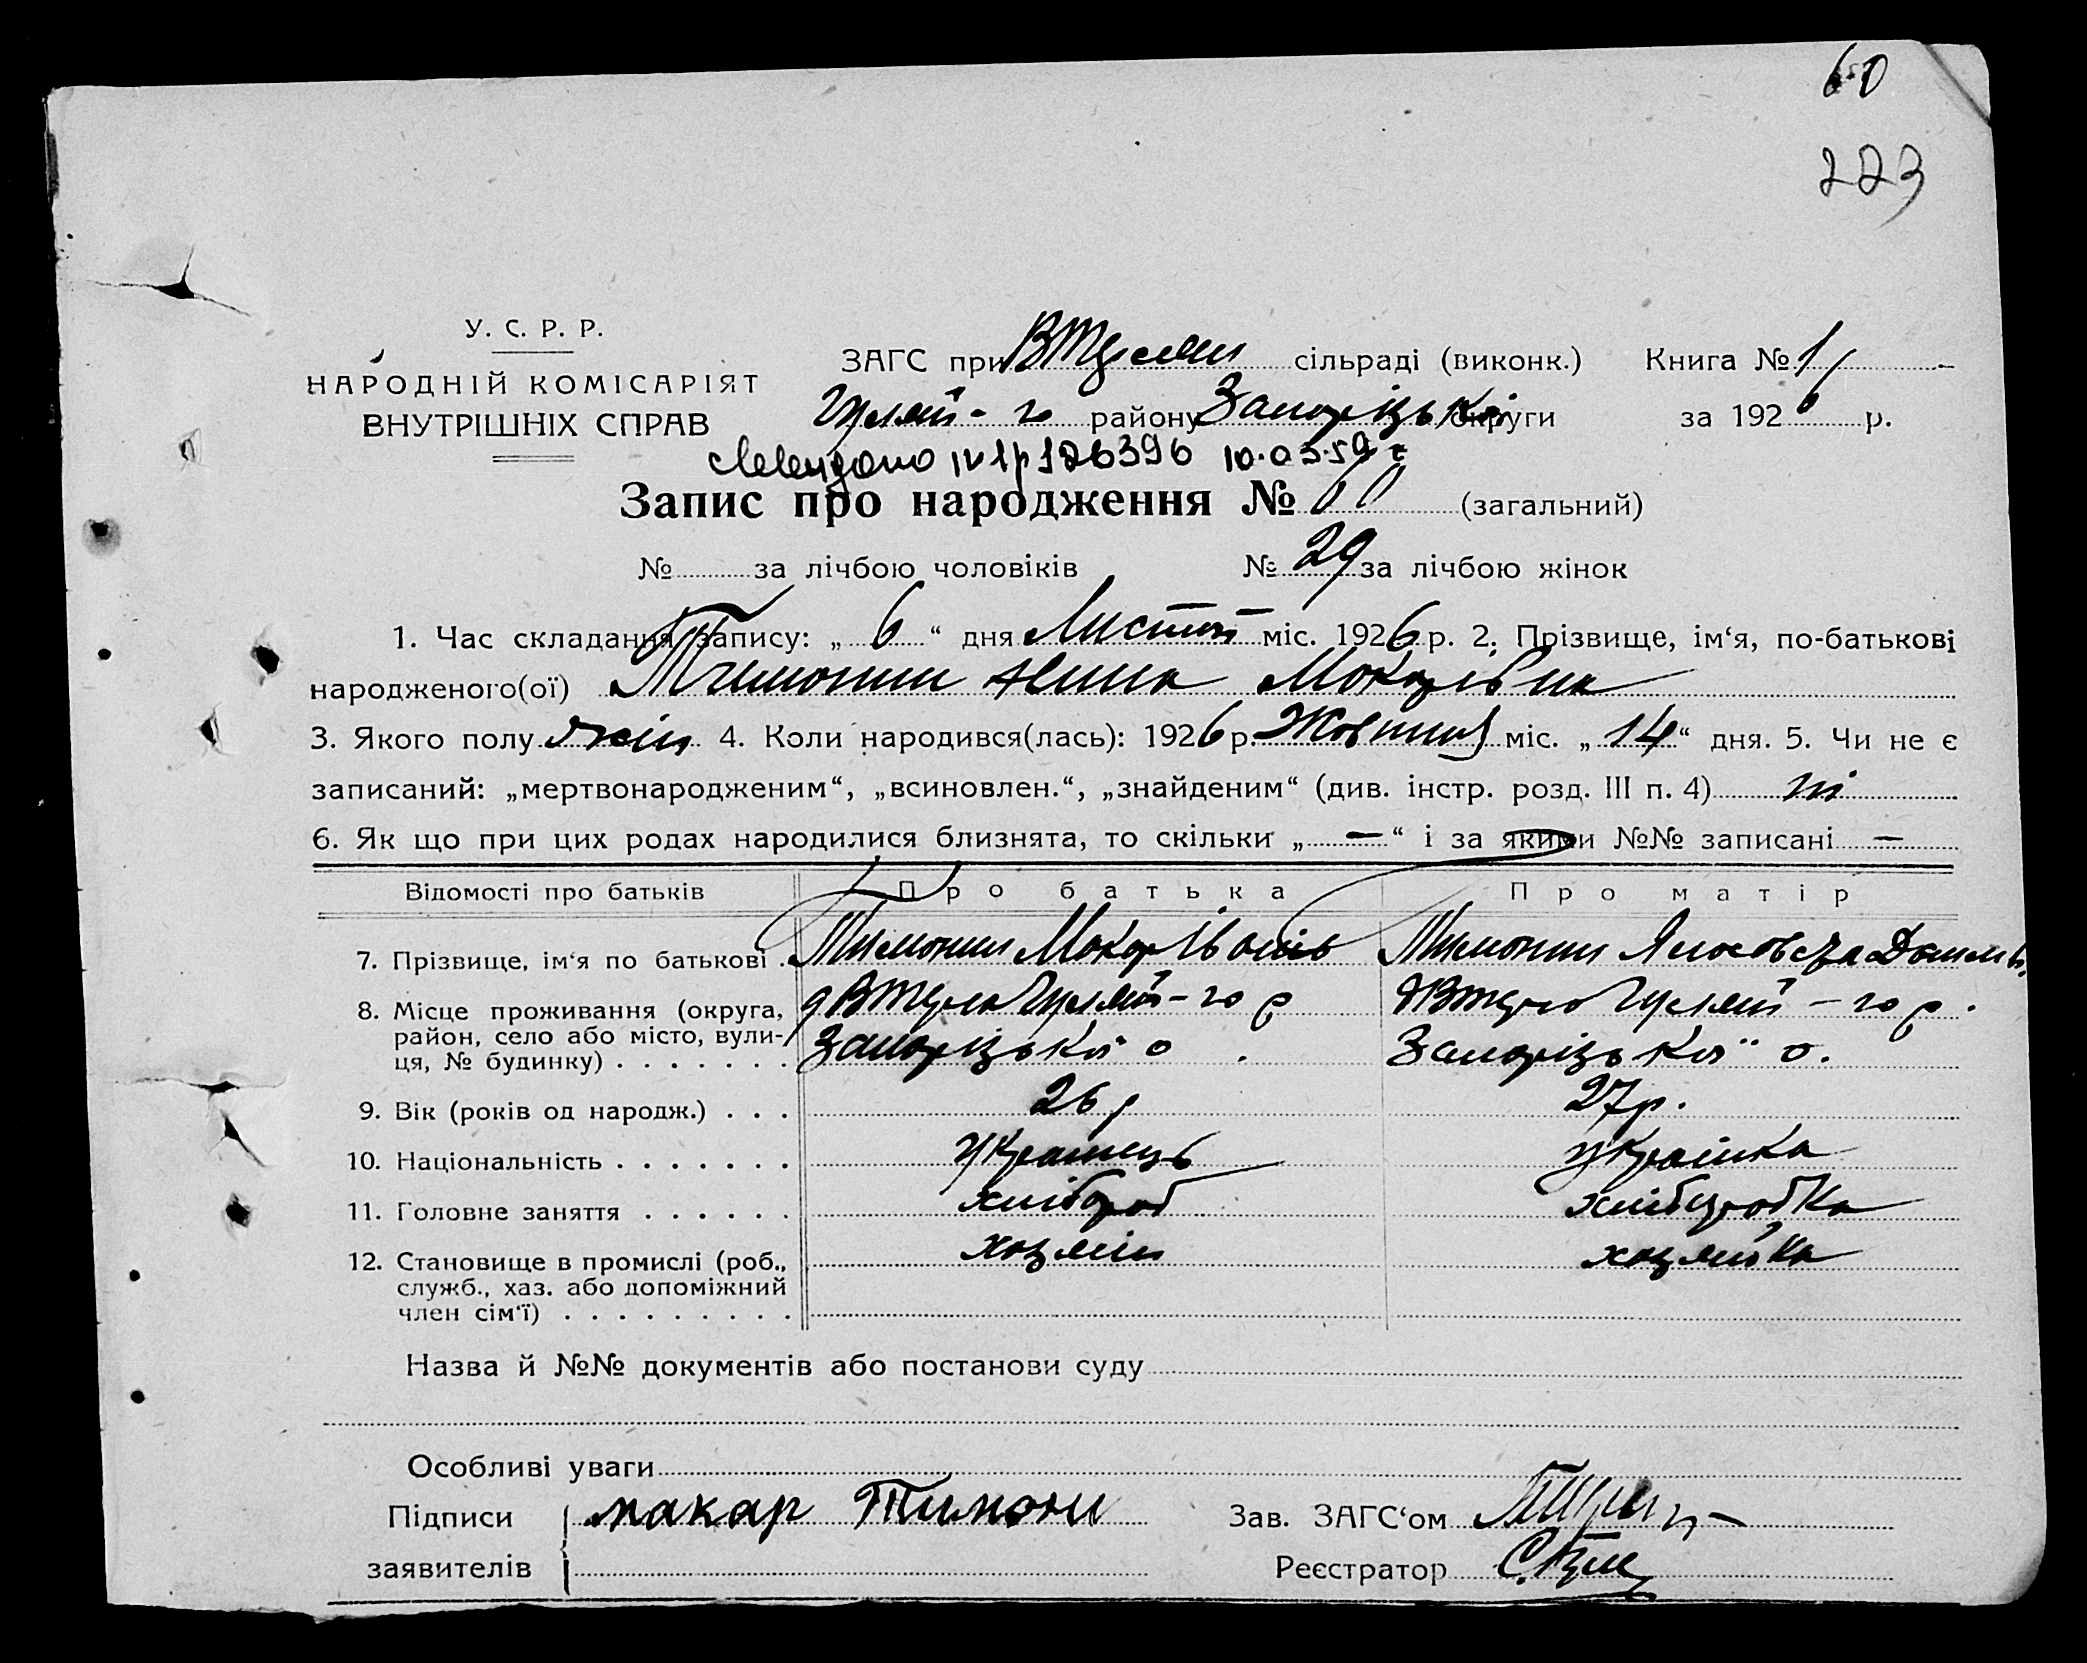 60
223
У. С. Р. Р.
НАРОДНІЙ КОМІСАРІЯТ
ВНУТРІШНІХ СПРАВ
ЗАГС при сільраді (виконк.) Книга № 1
Гуляй-го району Запорізької округи за 1926 р.
126396 10.03.59 г
Запис про народження № 60 (загальний)
№ за лічбою чоловіків № 29 за лічбою жінок
1. Час складання запису: „ 6 “ дня Листоп міс. 1926 р. 2. Прізвище, ім‘я, по-батькові
народженого(ої) Нина Макарівна
3. Якого полу жін 4. Коли народився(лась): 1926 р. Жовтня міс. „ 14 “ дня. 5. Чи не є
записаний: „мертвонародженим“, „всиновлен.“, „знайденим“ (див. інстр. розд. III п. 4) ні
6. Як що при цих родах народилися близнята, то скільки „ — “ і за якими №№ записані —
Відомості про батьків Про батька Про матір
7. Прізвище, ім‘я по батькові . Тимошин Макар Іванів Тимошин
8. Місце проживання (округа, Гуляй-го р Гуляй-го р.
район, село або місто, вули- Запорізької о. Запорізької о.
ця, № будинку) . . . . . . .
9. Вік (років од народж.) . . . 26 р 27 р.
10. Національність . . . . . . . українець українка
11. Головне заняття . . . . . . хлібороб хліборобка
12. Становище в промислі (роб., хозяїн хозяйка
служб., хаз. або допоміжний
член сім‘ї) . . . . . . . . .
Назва й №№ документів або постанови суду
Особливі уваги
Підписи макар Зав. ЗАГС‘ом
заявителів Реєстратор